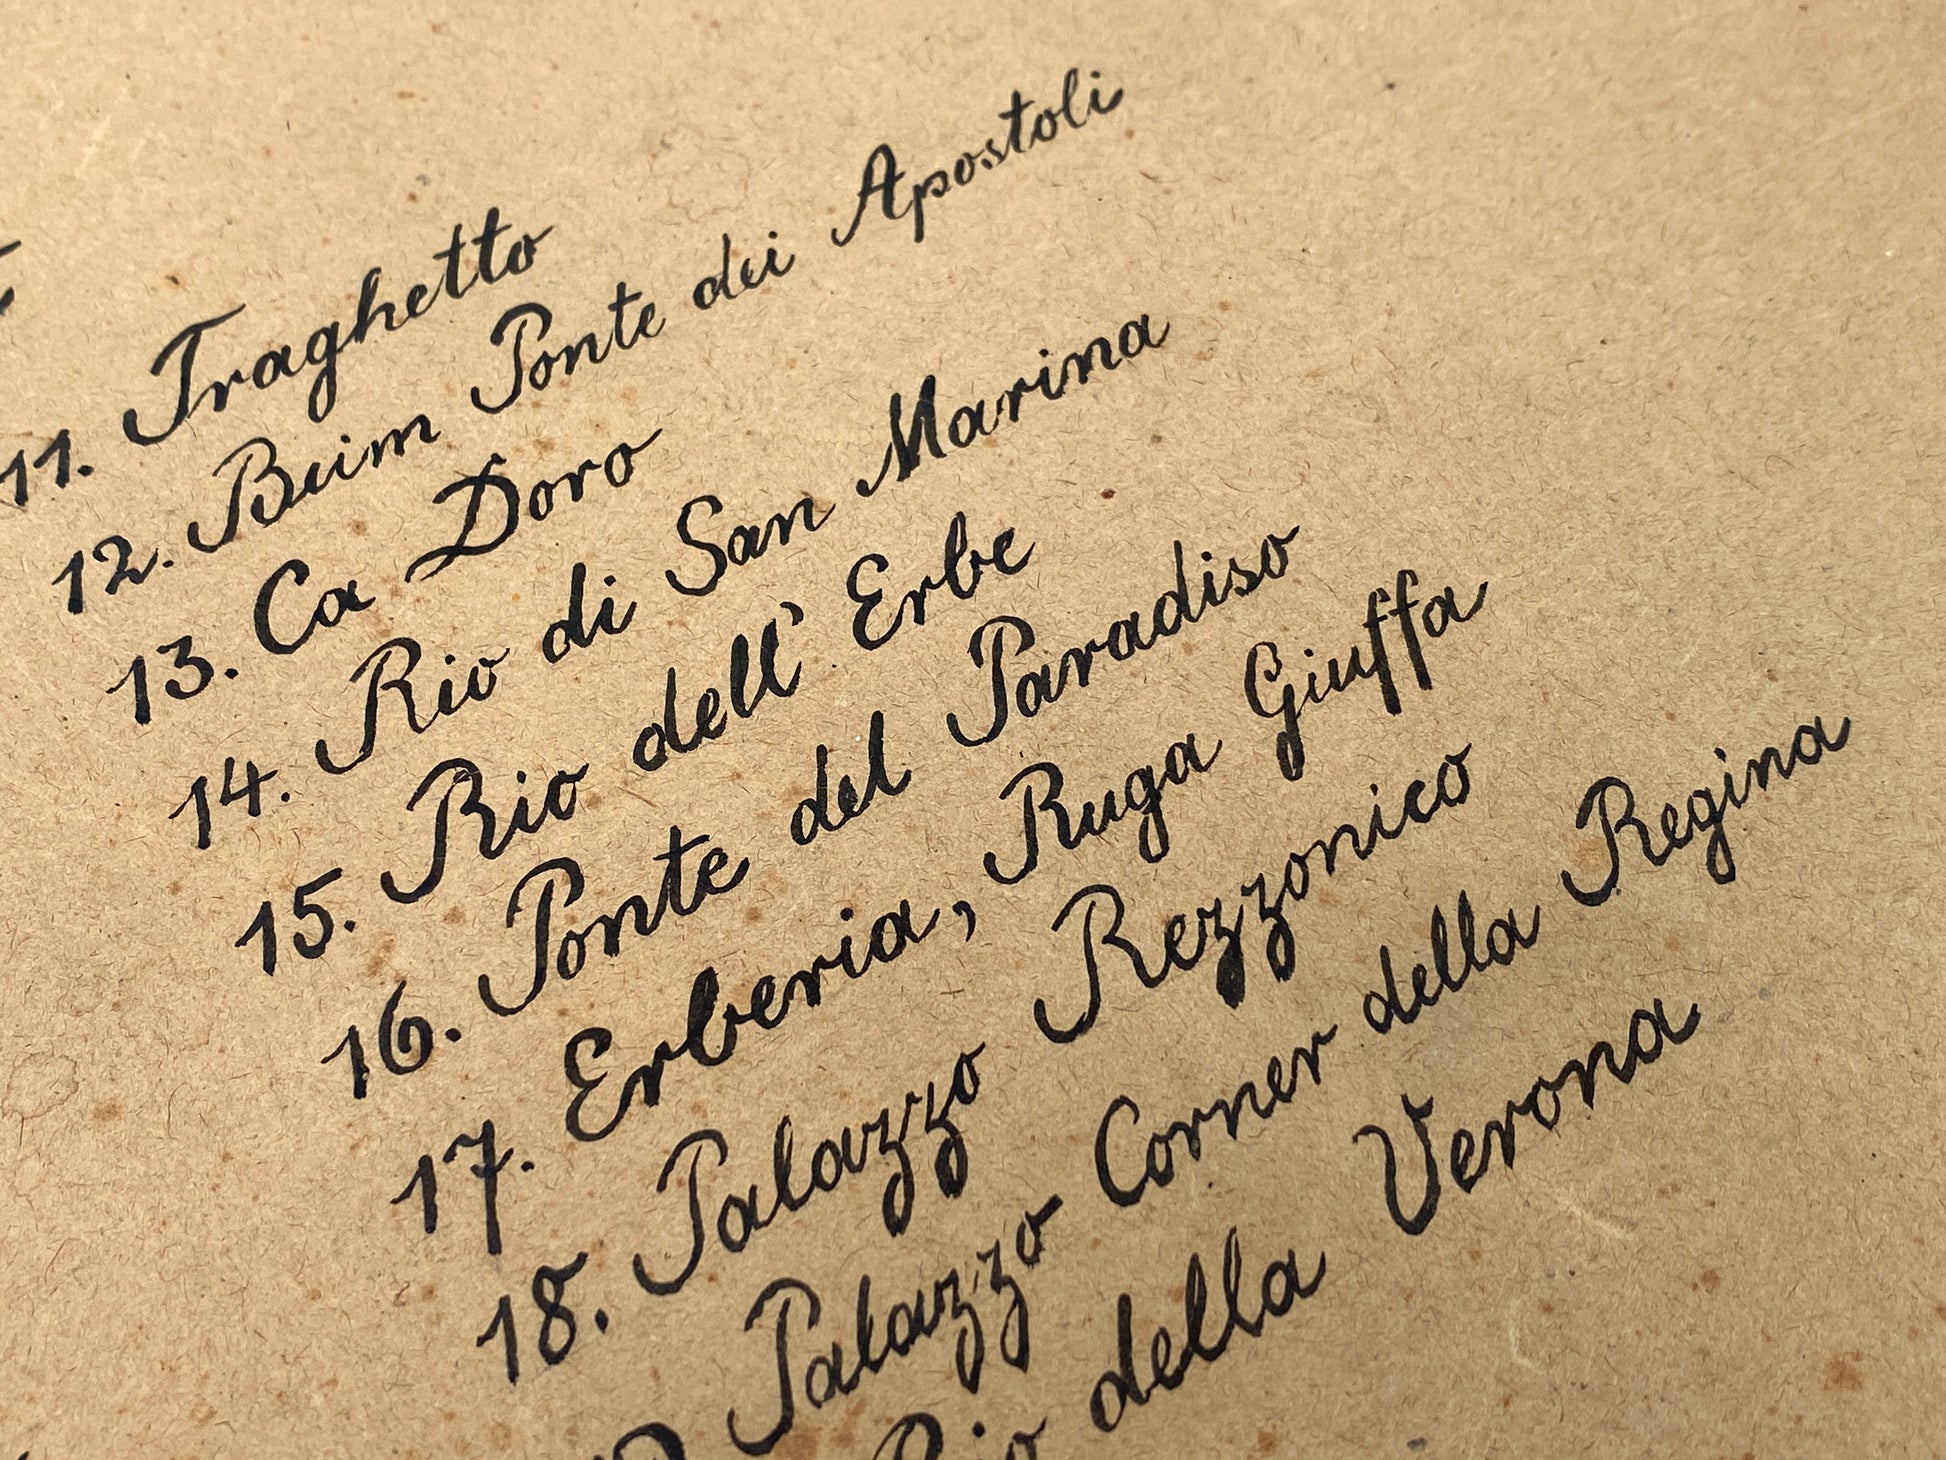 11. Traghetto
12. Beim Ponte dei Apostoli
13. Ca Doro
14. Rio di San Marina
15. Rio dell' Erbe
16. Ponte del Paradiso
17. Erberia, Ruga Giuffa
18. Palazzo Rezzonico
Palazzo Corner della Regina
Rio della Verona